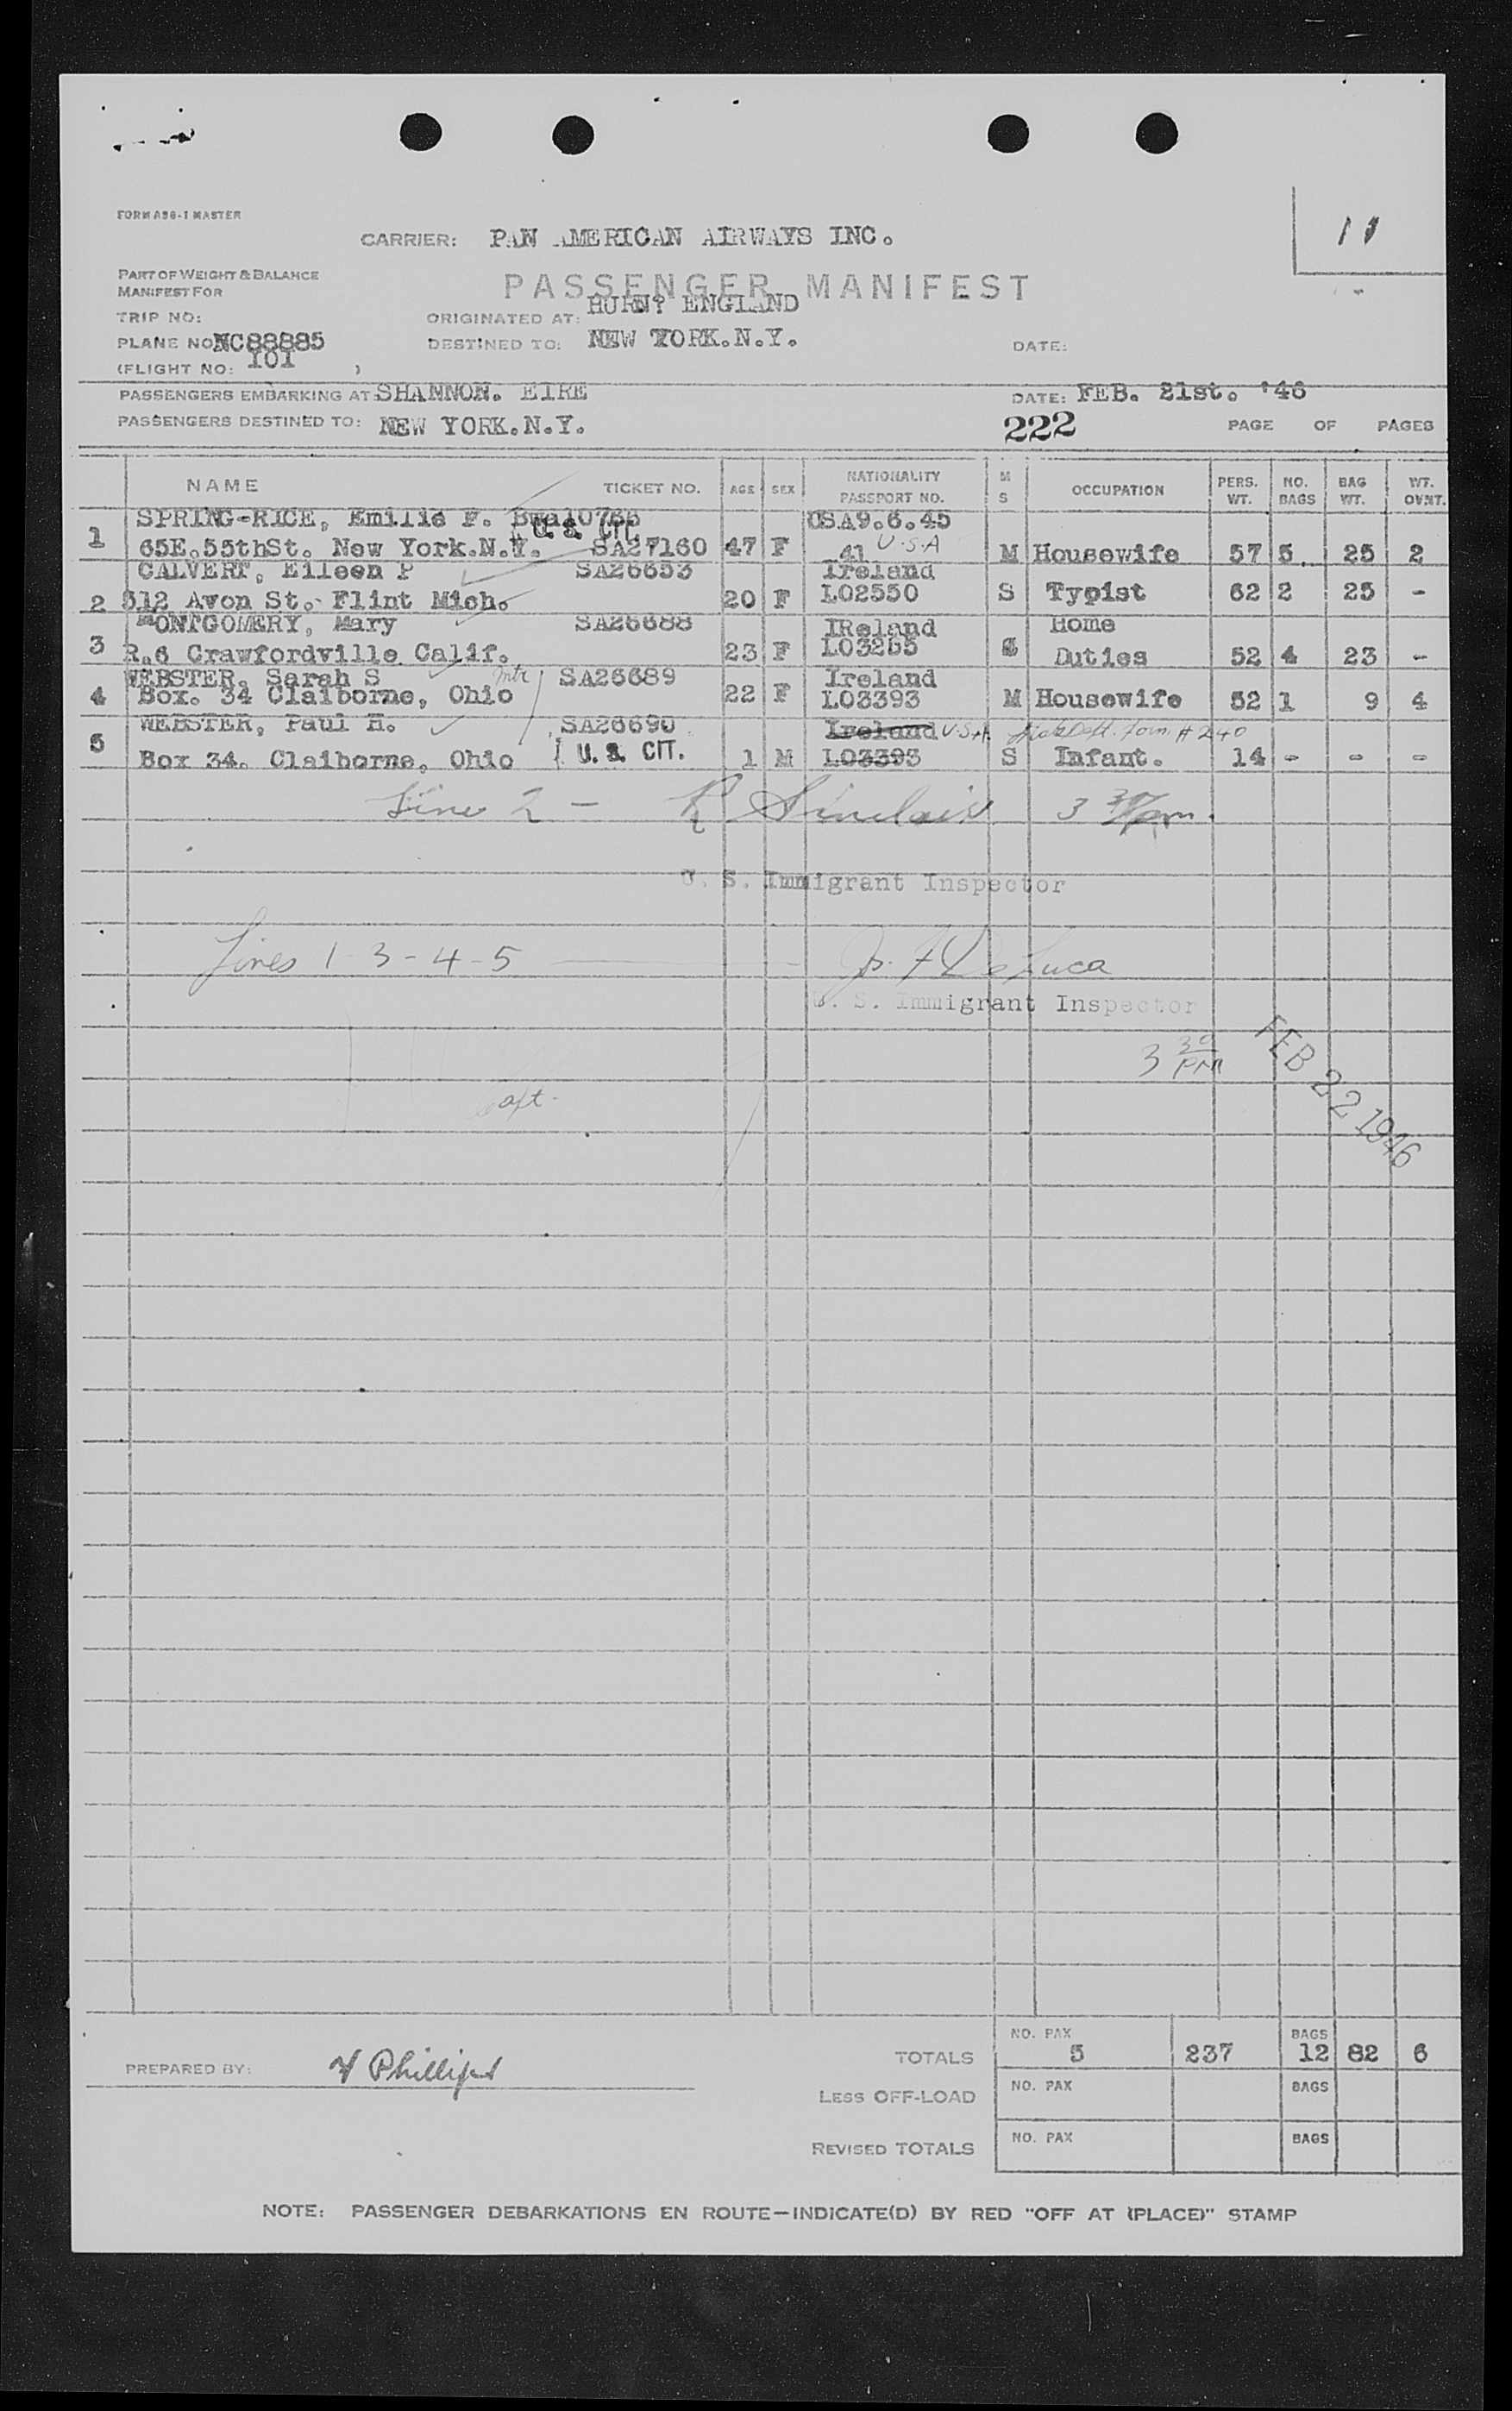 FORM A96-1 MASTER
CARRIER: PAN AMERICAN AIRWAYS INC.
11
PART OF WEIGHT & BALANCE
MANIFEST FOR
PASSENGER MANIFEST
TRIP NO:
ORIGINATED AT: HURN, ENGLAND
PLANE NO NC88885
DESTINED TO: NEW YORK.N.Y.
DATE:
(FLIGHT NO: 101 )
PASSENGERS EMBARKING AT: SHANNON. EIRE
DATE: FEB. 21st. '46
PASSENGERS DESTINED TO: NEW YORK.N.Y.
222
PAGE OF PAGES
NAME TICKET NO. AGE SEX NATIONALITY PASSPORT NO. M S OCCUPATION PERS. WT. NO. BAGS BAG WT. WT. OVNT.
SPRING-RICE, Emilie F. USA9.6.45
U.S. CIT.
1 65E.55thSt. New York.N.Y. SA27160 47 F 41 U.S.A M Housewife 57 5. 25 2
CALVERT, Eileen P SA26653 Ireland
2 512 Avon St. Flint Mich. 20 F L02550 S Typist 62 2 25 -
MONTGOMERY, Mary SA26688 IReland Home
3 R.6 Crawfordville Calif. 23 F L03265 S Duties 52 4 23 -
WEBSTER, Sarah S mtr SA26689 Ireland
4 Box. 34 Claiborne, Ohio 22 F L03393 M Housewife 52 1 9 4
WEBSTER, Paul H. SA26690 Ireland U.S.A. Form # 240
5 Box 34. Claiborne, Ohio U.S. CIT. 1 M L03393 S Infant. 14 - - -
Line 2 - R Sinclair 3 30/pm.
U. S. Immigrant Inspector
Lines 1-3-4-5 Jr. F De Luca
U. S. Immigrant Inspector
3 30 PM
FEB 22 1946
apt.
TOTALS NO. PAX 5 237 BAGS 12 82 6
PREPARED BY: Phillips
LESS OFF-LOAD NO. PAX BAGS
REVISED TOTALS NO. PAX BAGS
NOTE: PASSENGER DEBARKATIONS EN ROUTE—INDICATE(D) BY RED "OFF AT (PLACE)" STAMP